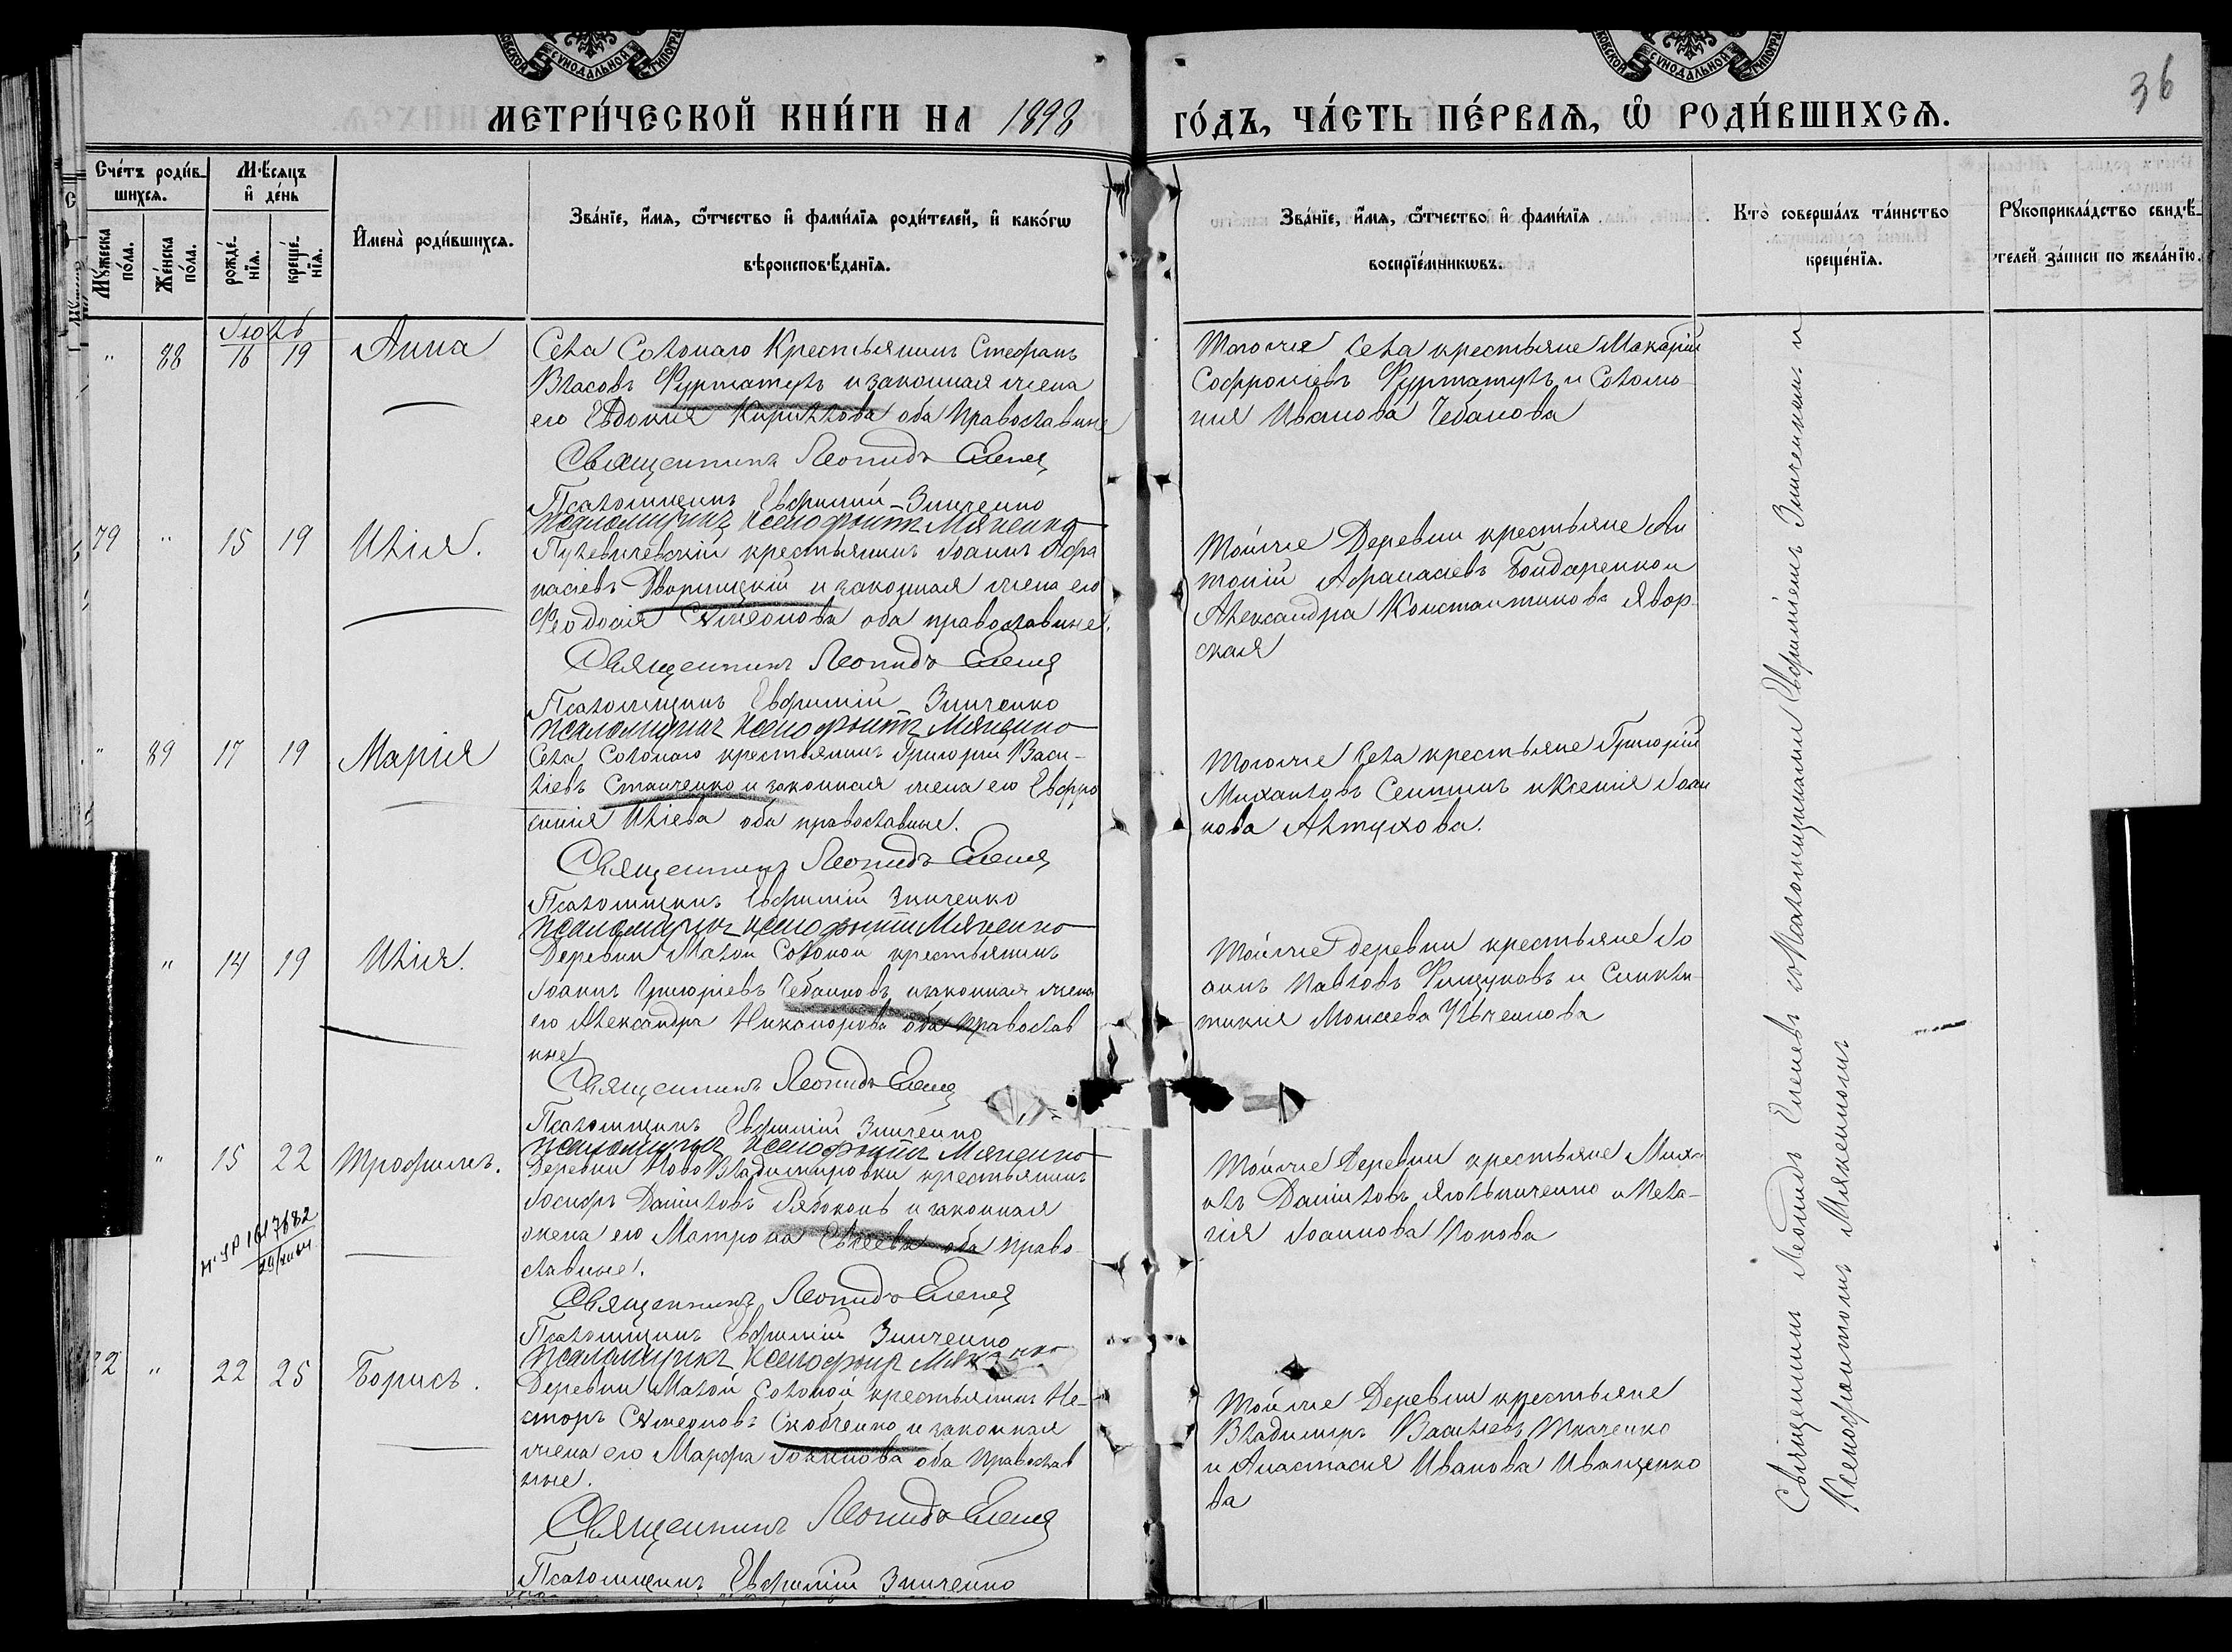 МЕТРИ́ЧЕСКОЙ КНИ́ГИ НА 1898
ГО́ДЪ, ЧА́СТЬ ПЕ́РВАѦ, Ѡ҆ РОДИ́ВШИХСѦ.
36
Сче́тъ роди́в-
шихся.
Мѣсяцъ
и҆ де́нь
Мꙋ́жеска
по́ла.
Же́нска
по́ла.
рожде́-
нїя.
креще́-
нїя.
И҆мена̀ роди́вшихся.
Зва́нїе, и҆́мя, ѻ҆́тчество и҆ фами́лїя роди́телей, и҆ како́гѡ
вѣроисповѣ́данїя.
Зва́нїе, и҆́мя, ѻ҆́тчество и҆ фами́лїя
воспрїе́мникѡвъ.
Кто̀ соверша́лъ та́инство
креще́нїя.
Рꙋкоприкла́дство свидѣ́-
телей за́писи по жела́нїю.
Іюль
" 88 16 19 Анна
Села Солонаго Крестьянинъ Стефанъ
Власовъ Фурматулъ и законная жена
его Евдокия Кирилова оба Православные
Священникъ Леонидъ Еленев
Псаломщикъ Евфимій Зинченко
Псаломщикъ Ксенофонтъ Мяченко
Тогоже Села крестьяне Макарій
Софроніевъ Фурматулъ и Соломо-
нія Иванова Чебанова
79 " 15 19 Илія.
крестьянинъ Іоаннъ Афа
насіевъ Дворницкій и законная жена его
Феодосія Симеонова оба православные.
Священникъ Леонидъ Еленев
Псаломщикъ Евфимій Зинченко
Псаломщикъ Ксенофонтъ Мяченко
Тойже Деревни крестьяне Ан
тоній Афанасіевъ Бондаренко и
Александра Константинова Явор-
ская
" 89 17 19 Марія
Села Солонаго крестьянинъ Григорій Васи-
ліевъ Станченко и законная жена его Евфро
синія Иліева оба православные.
Священникъ Леонидъ Еленев
Псаломщикъ Евфимій Зинченко
Псаломщикъ Ксенофонтъ Мяченко
Тогоже Села крестьяне Григорій
Михаиловъ и Ксенія Іоан
нова Алтухова.
" 14 19 Илія.
Деревни Малой Солоной крестьянинъ
Іоаннъ Григоріевъ Чебановъ и законная жена
его Александра Никанорова оба православ
ные
Священникъ Леонидъ Еленев
Псаломщикъ Евфимій Зинченко
Псаломщикъ Ксенофонтъ Мяченко
Тойже деревни крестьяне Іо
аннъ Павловъ и Синкли-
тикия Моисеева
" 15 22 Трофимъ.
29/
Деревни Ново Владимировки крестьянинъ
Іосифъ Даниловъ Рябоконь и законная
жена его Матрона Евсеева оба право
славные.
Священникъ Леонидъ Еленев
Псаломщикъ Евфимій Зинченко
Псаломщикъ Ксенофонтъ
Тойже Деревни крестьяне Миха
илъ Даниловъ и Пела-
гія Іоаннова Попова
22 25 Борисъ.
Деревни Малой Солоной крестьянинъ Не-
сторъ Симеоновъ Скобченко и законная
жена его Марфа Іоаннова оба Православ
ные.
Священникъ Леонидъ Еленев
Псаломщикъ Евфимій Зинченко
Тойже Деревни крестьяне
Владимиръ Василіевъ Ткаченко
и Анастасия Иванова Иванченко
ва
Священникъ Леонидъ Еленевъ со Псаломщиками Евфиміемъ Зинченкомъ и
Ксенофонтомъ Мяченкомъ